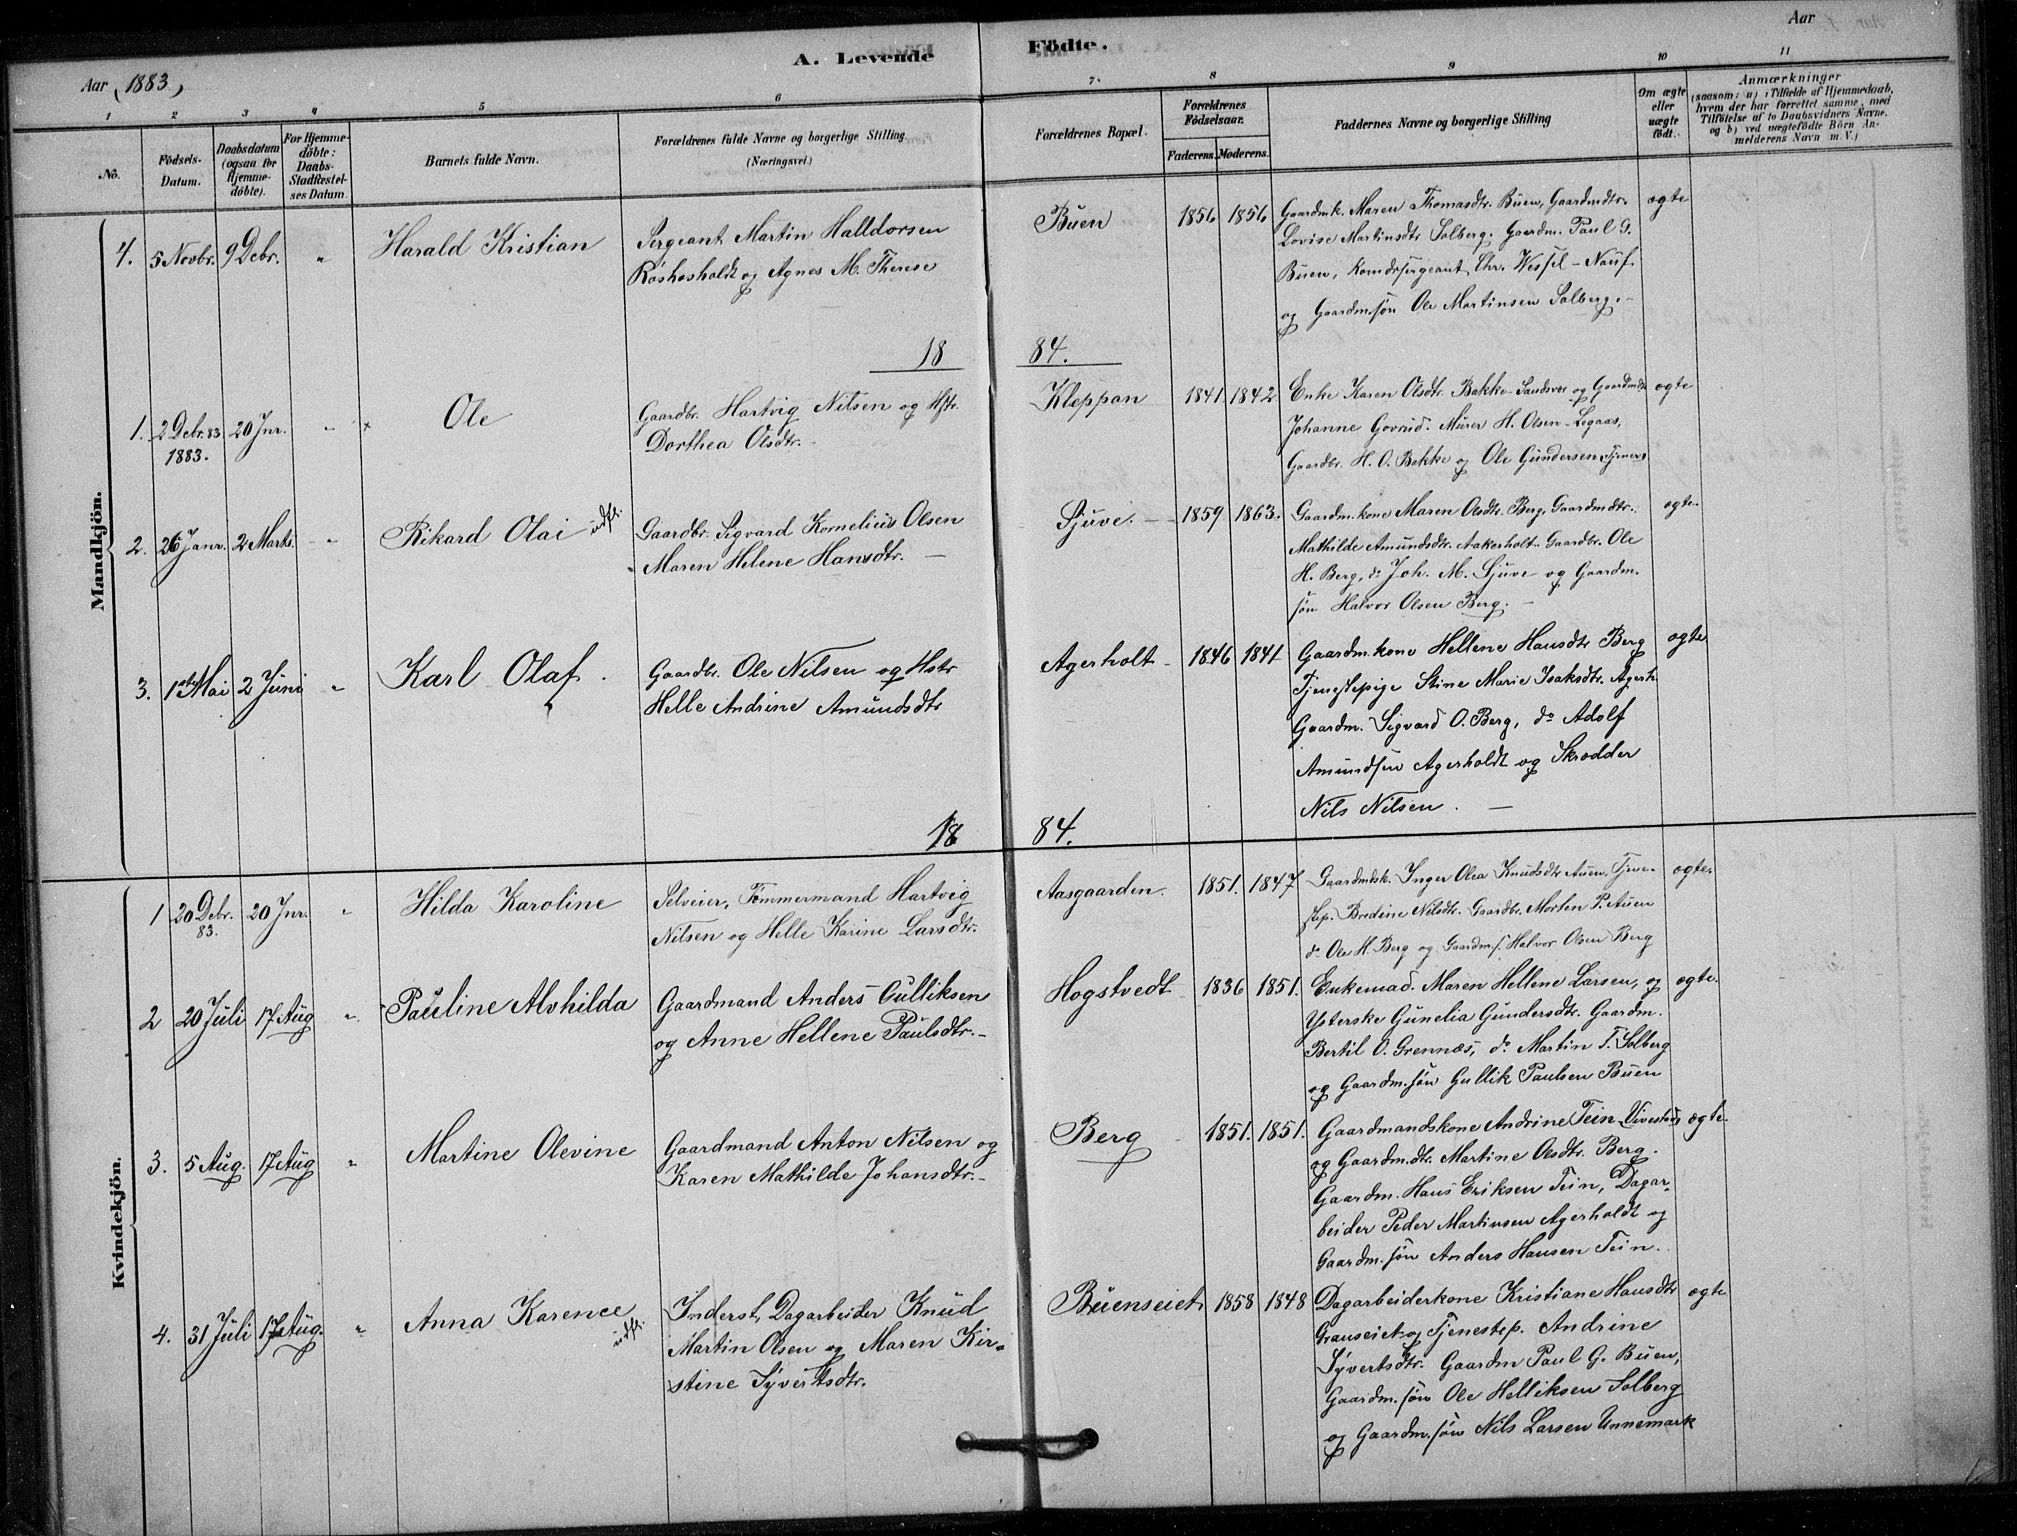 Aar (1883)
A. Levende
Födte.
Aar
1 2 3 4 5 6 7. 8 9 10 11
No.
Födsels-Datum.
Daabsdatum (ogsaa for Hjemme-döbte).
For Hjemme-döbte: Daabs-Stadfæstel-ses Datum.
Barnets fulde Navn.
Forældrenes fulde Navne og borgerlige Stilling
(Næringsvei.)
Forældrenes Bopæl.
Forældrenes Födselsaar.
Faderens. Moderens.
Faddernes Navne og borgerlige Stilling
Om ægte eller uægte födt.
Anmærkninger
(saasom: a) i Tilfælde af Hjemmedaab,
hvem der har forrettet samme, med
Tilföielse af to Daabsvidners Navne.
og b) ved uægtefödte Börn An-
melderens Navn m. V.)
Mandkjön.
4. 5 Novbr. 9 Debr. " Harald Kristian
Sergeant Martin Halldorsen
og Agnes M. Therese
Buen 1856 1856
Gaardmk. Maren Thomasdtr. Buen, Gaardmdtr.
Lovise Martinsdtr Solberg. Gaardm. Paul G.
Buen, Chr. Wessel-
og Gaardm.søn Ole Martinsen Solberg. -
ægte
18 84.
1. 2 Debr. 83 20 Jnr. " x Ole
1883.
Gaardbr. Hartvig Nilsen og Hstr.
Dorthea Olsdtr. -
Kleppan 1841 1842
Enke Karen Olsdtr. Bakke - Sandsvær og Gaardmdtr
Johanne Govrud. Murer H. Olsen - Legaas,
Gaardbr. H. O. Bakke og Ole Gundersen
ægte
2. 26 Janr. 2 Marts. " Rikard Olai udfl.
Gaardbr. Sigvard Kornelius Olsen
Maren Helene Hansdtr. -
Sjuve. - 1859 1863.
Gaardm.kone Maren Olsdtr. Berg. Gaardmdtr.
Mathilde Amundsdtr. Aakerholt. Gaardbr. Ole
H. Berg, do Joh. M. Sjuve og Gaardm.
søn Halvor Olsen Berg. -
ægte.
3. 1ste Mai 2 Juni " Karl Olaf.
Gaardbr. Ole Nilsen og Hstr
Helle Andrine Amundsdtr
Agerholt 1846 1841
Gaardm.kone Hellene Hansdtr Berg
Tjenestepige Stine Marie Isaksdtr. Agerh.
Gaardm. Sigvard O. Berg, do Adolf
Amundsen Agerholdt og Skrædder
Nils Nilsen. -
ægte
18 84.
Kvindekjön.
1 20 Debr. 20 Jnr. " Hilda Karoline
83.
Selveier, Tømmermand Hartvig
Nilsen og Helle Karine Larsdtr.
Aasgaarden. 1851. 1847
Gaardmdsk. Inger Olea Knudsdtr Auen, Tjene-
step. Bredine Nilsdtr. Gaardbr. Morten P. Auen
do Ole H. Berg og Gaardm.s. Halvor Olsen Berg
ægte.
2 20 Juli 17 Aug " Pauline Alvhilda
Gaardmand Anders Gulliksen
og Anne Hellene Paulsdtr. -
Hogstvedt 1836 1851.
Enkemad. Maren Hellene Larsen, og
Ysterske Gunelia Gundersdtr. Gaardm.
Bertil O. Grennæs, do Martin T. Solberg
og Gaardm.søn Gullik Paulsen Buen
ægte.
3. 5 Aug. 17 Aug " Martine Olevine
Gaardmand Anton Nilsen og
Karen Mathilde Johansdtr. -
Berg 1851. 1851.
Gaardmandskone Andrine Tein - Vivestad
og Gaardm.dtr. Martine Olsdtr. Berg.
Gaardm. Hans Eriksen Tein, Dagar-
beider Peder Martinsen Agerholdt og
Gaardm.søn Anders Hansen Tein.
ægte.
4. 31 Juli 17 Aug. " Anna Karence udfl.
Inderst, Dagarbeider Knud
Martin Olsen og Maren Kir-
stine Syvertsdtr.
Buenseiet 1858 1848
Dagarbeiderkone Kristiane Hansdtr
og Tjenestep. Andrine
Syvertsdtr. Gaardm Paul G. Buen,
Gaardm.søn Ole Helliksen Solberg
og Gaardm.søn Nils Larsen Unnemark
ægte